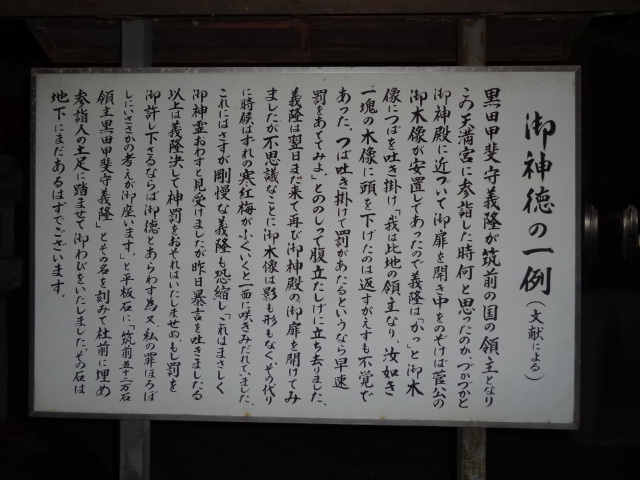 御神徳の一例(文献による)
黒田甲斐守義隆が筑前の国の領主となり
この天満宮に参詣した時何と思ったのか、づかづかと
御神殿に近づいて御扉を開き中をのぞけば菅公の
御木像が安置してあったので義隆は「かっ」と御木
像につばを吐き掛け「我は此地の領主なり、汝如き
一塊の木像に頭を下げたのは返すがえすも不覚で
あった。つば吐き掛けて罰があたるというなら早速
罰をあててみよ。とののしって腹立たしげに立ち去りました。
義隆は翌日また来て再び御神殿の御扉を開けてみ
ましたが不思議なことに御木像は影も形もなく、その代り
に時候はずれの寒紅梅がふくいくと一面に咲きみだれていました。
これにはさすが剛慢な義隆も恐縮し「これはまさしく
御神霊おわすと見受けましたが昨日暴言を吐きましたる
以上は義隆決して神罰をおそれはいたしませぬもし罰を
御許し下さるならば御徳とあらわす為又、私の罪ほろぼ
しにいささかの考えが御座います。」と平板石に、「筑前五十二万石
領主黒田甲斐守義隆」とその名を刻みて社前に埋め
参詣人の土足に踏ませて御わびをいたしました。その石は
地下にまだあるはずでございます。